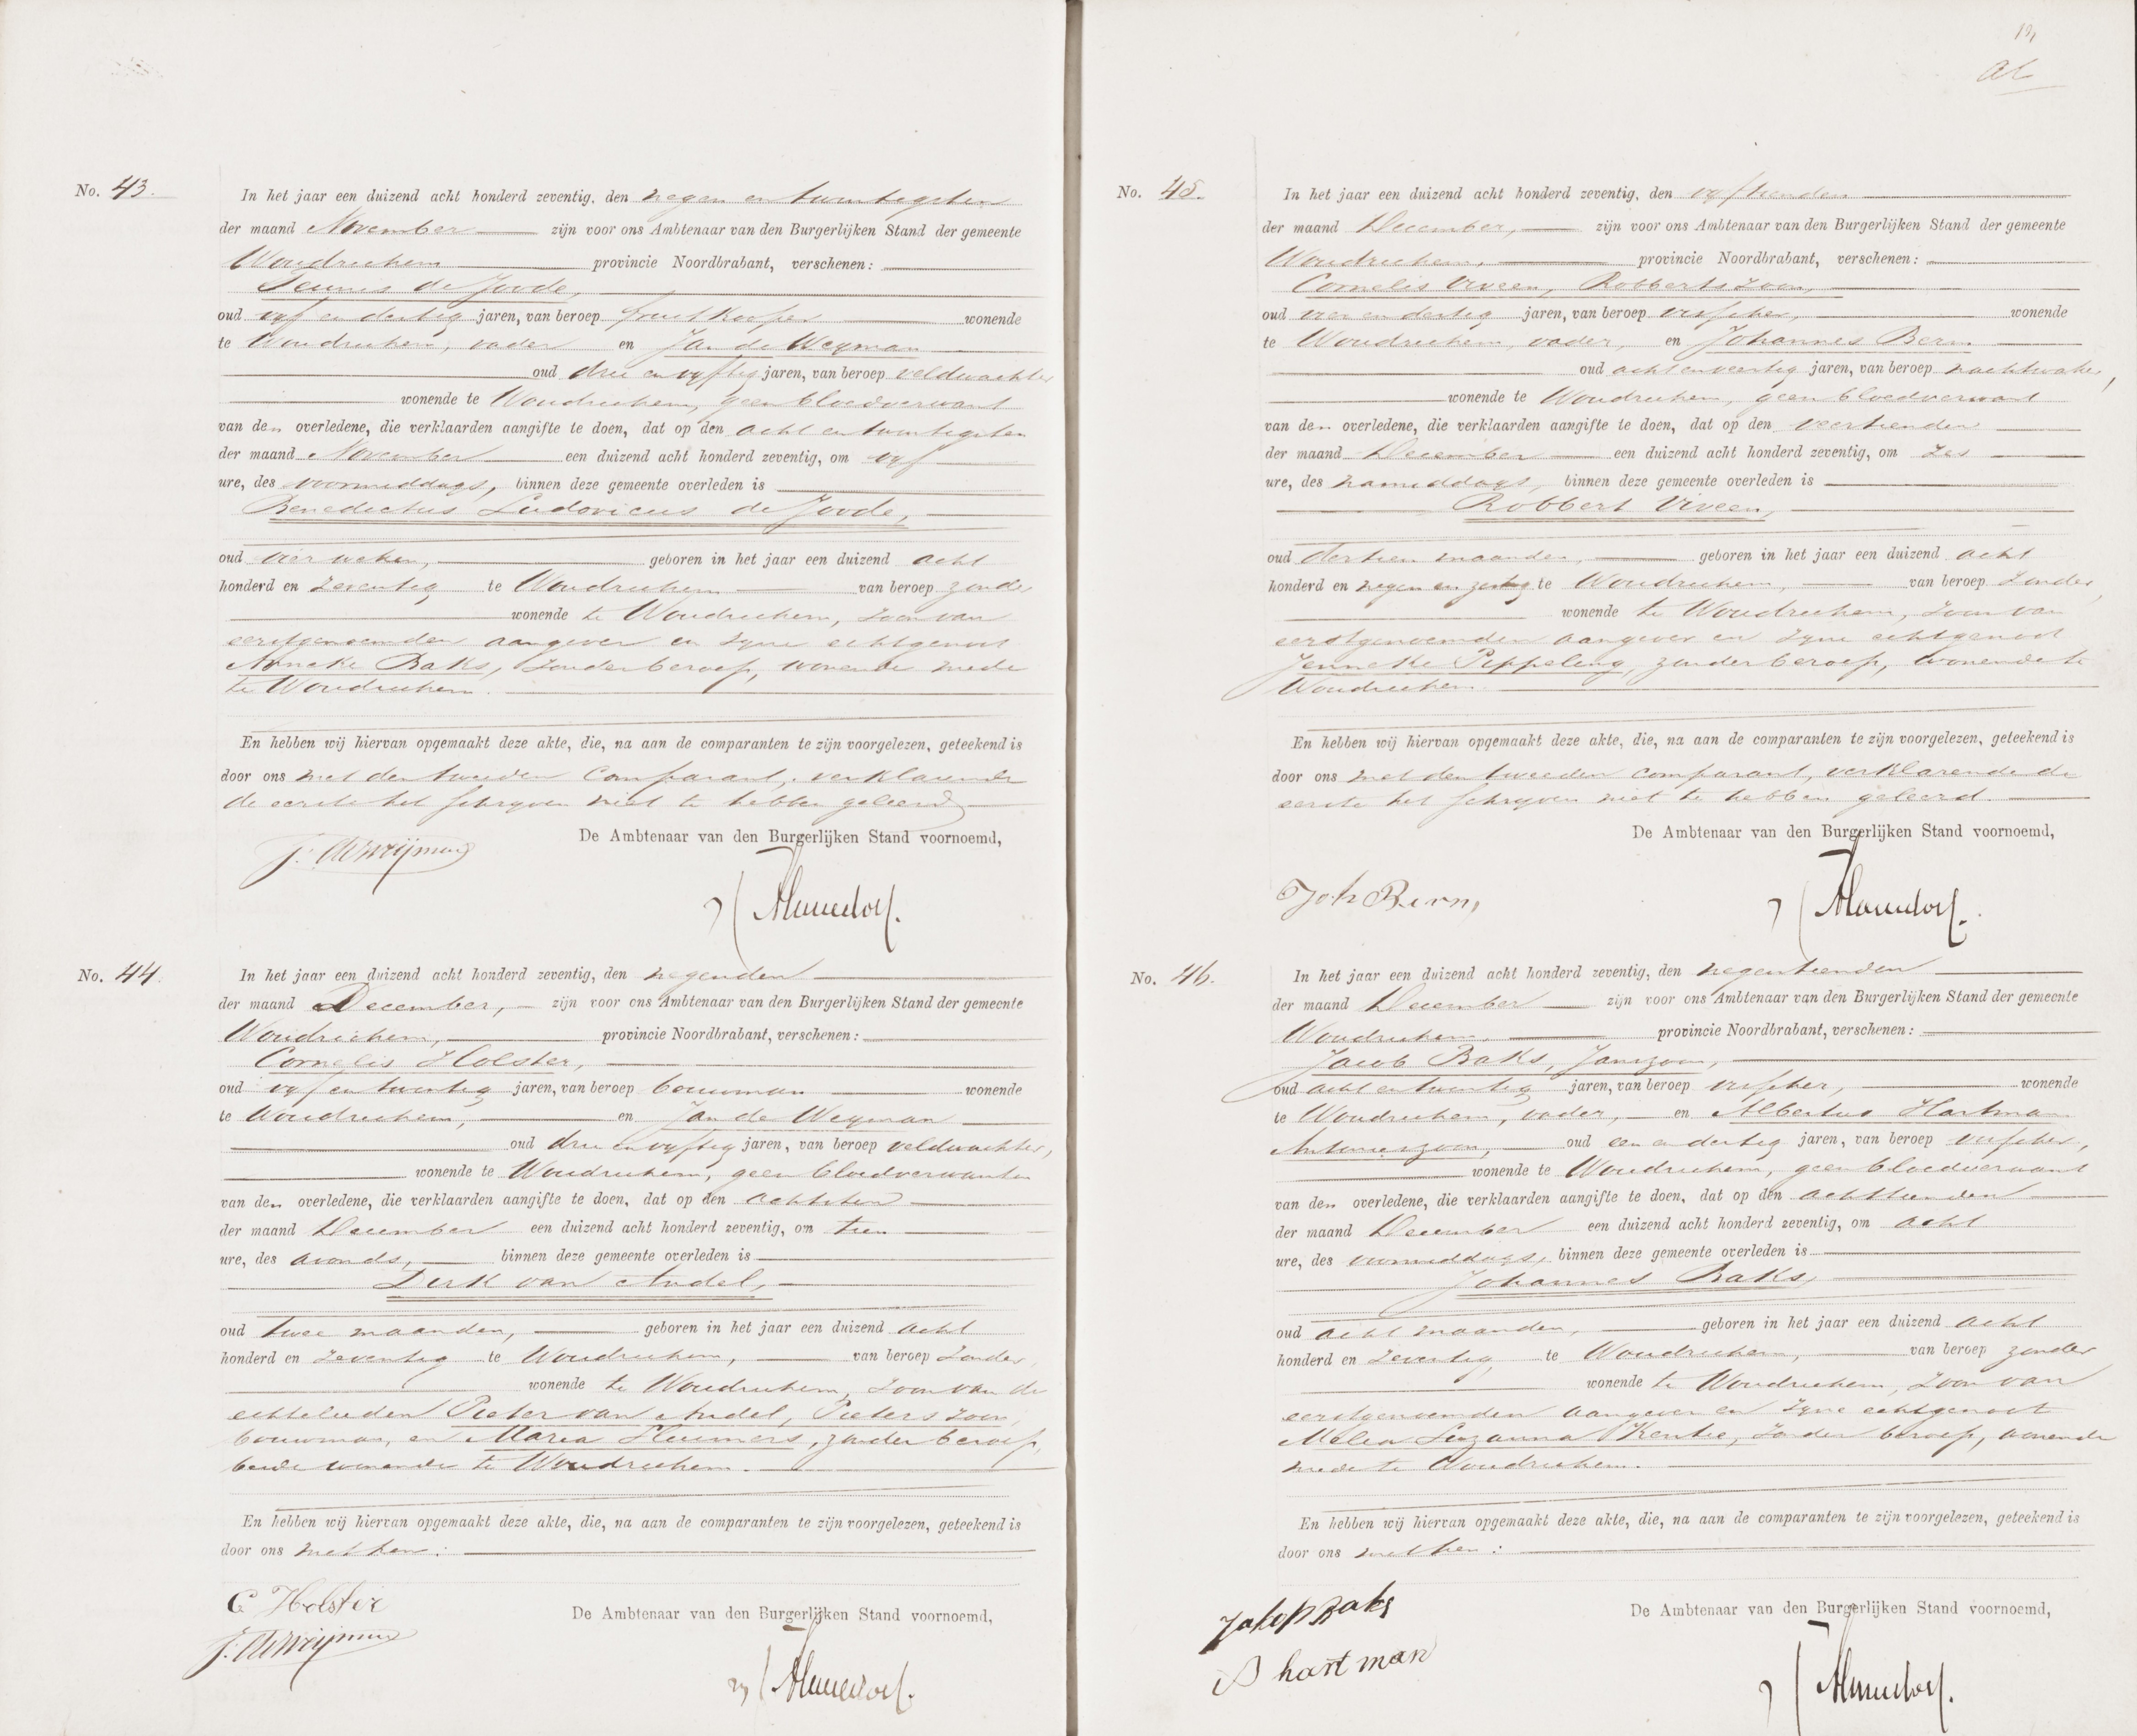 No. 43.
In het jaar een duizend acht honderd zeventig, den negen en twintigsten
der maand November zijn voor ons Ambtenaar van den Burgerlijken Stand der gemeente
Woudrichem provincie Noordbrabant, verschenen:
Teunis de Joode,
oud vyf en dertig jaren, van beroep fruitkooper wonende
te Woudrichem, vader en Jan de Weyman
oud drie en vyftig jaren, van beroep veldwachter
wonende te Woudrichem, geen bloedverwant
van den overledene, die verklaarden aangifte te doen, dat op den acht en twintigsten
der maand November een duizend acht honderd zeventig, om vyf
ure, des voormiddags, binnen deze gemeente overleden is
Benedictus Ludovicus de Joode,
oud vier weken, geboren in het jaar een duizend acht
honderd en zeventig te Woudrichem van beroep zonder
wonende te Woudrichem, zoon van
eerstgenoemden aangever en zyne echtgenoot
Anneke Baks, zonder beroep, wonende mede
te Woudrichem.
En hebben wij hiervan opgemaakt deze akte, die, na aan de comparanten te zijn voorgelezen, geteekend is
door ons met den tweeden comparant, verklarende
de eerste het schryven niet te hebben geleerd
De Ambtenaar van den Burgerlijken Stand voornoemd,
No. 44.
In het jaar een duizend acht honderd zeventig, den negenden
der maand December, zijn voor ons Ambtenaar van den Burgerlijken Stand der gemeente
Woudrichem, provincie Noordbrabant, verschenen:
Cornelis Holster,
oud vyf en twintig jaren, van beroep bouwman wonende
te Woudrichem, en Jan de Weyman
oud drie en vyftig jaren, van beroep veldwachter,
wonende te Woudrichem, geen bloedverwanten
van den overledene, die verklaarden aangifte te doen, dat op den achtsten
der maand December een duizend acht honderd zeventig, om tien
ure, des avonds, binnen deze gemeente overleden is
Dirk van Andel,
oud twee maanden, geboren in het jaar een duizend acht
honderd en zeventig te Woudrichem, van beroep zonder,
wonende te Woudrichem, zoon van de
echtelieden Pieter van Andel, Pieterszoon,
bouwman, en Maria, zonder beroep,
beide wonende te Woudrichem.
En hebben wij hiervan opgemaakt deze akte, die, na aan de comparanten te zijn voorgelezen, geteekend is
door ons met hen:
C Holster
De Ambtenaar van den Burgerlijken Stand voornoemd,
No. 45.
In het jaar een duizend acht honderd zeventig, den vyftienden
der maand December, zijn voor ons Ambtenaar van den Burgerlijken Stand der gemeente
Woudrichem, provincie Noordbrabant, verschenen:
Cornelis Viveen, Robbertszoon,
oud vier en dertig jaren, van beroep visscher, wonende
te Woudrichem, vader, en Johannes Bern
oud acht en veertig jaren, van beroep nachtwaker,
wonende te Woudrichem, geen bloedverwant
van den overledene, die verklaarden aangifte te doen, dat op den veertienden
der maand December een duizend acht honderd zeventig, om zes
ure, des namiddags, binnen deze gemeente overleden is
Robbert Viveen,
oud dertien maanden, geboren in het jaar een duizend acht
honderd en negen en zestig te Woudrichem, van beroep zonder,
wonende te Woudrichem, zoon van
eerstgenoemden aangever en zyne echtgenoot
Jenneke Peppeling, zonder beroep, wonende te
Woudrichem.
En hebben wij hiervan opgemaakt deze akte, die, na aan de comparanten te zijn voorgelezen, geteekend is
door ons met den tweeden comparant, verklarende de
eerste het schryven niet te hebben geleerd.
De Ambtenaar van den Burgerlijken Stand voornoemd,
Joh Bern,
No. 46.
In het jaar een duizend acht honderd zeventig, den negentienden
der maand December zijn voor ons Ambtenaar van den Burgerlijken Stand der gemeente
Woudrichem, provincie Noordbrabant, verschenen:
Jacob Baks, Janszoon,
oud acht en twintig jaren, van beroep visscher, wonende
te Woudrichem, vader, en Albertus Hartman
Antoniezoon, oud een en dertig jaren, van beroep visscher,
wonende te Woudrichem, geen bloedverwant
van den overledene, die verklaarden aangifte te doen, dat op den achttienden
der maand December een duizend acht honderd zeventig, om acht
ure, des voormiddags, binnen deze gemeente overleden is
Johannes Baks,
oud acht maanden, geboren in het jaar een duizend acht
honderd en zeventig te Woudrichem, van beroep zonder
wonende te Woudrichem, zoon van
eerstgenoemden aangever en zyne echtgenoot
Suzanna Kentie, zonder beroep, wonende
mede te Woudrichem.
En hebben wij hiervan opgemaakt deze akte, die, na aan de comparanten te zijn voorgelezen, geteekend is
door ons met hen:
Jakop Baks
De Ambtenaar van den Burgerlijken Stand voornoemd,
hartman